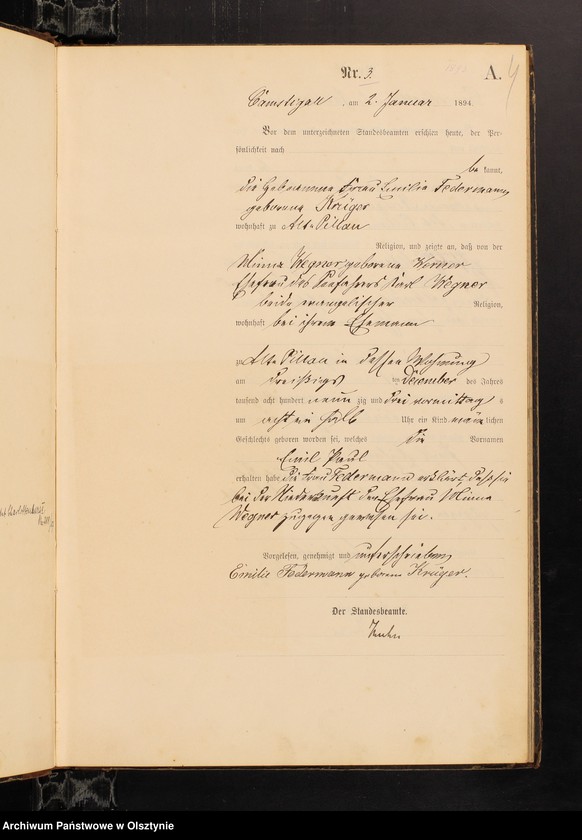 Nr. 3.
A.
4
Camstigall, am 2. Januar 1894
Vor dem unterzeichneten Standesbeamten erschien heute, der Per-
sönlichkeit nach
be kannt,
die Hebeamme Frau Emilie Federmann
geborene Krüger
wohnhaft zu Alt Pillau
Religion, und zeigte an, daß von der
Minna Wegner geborene Werner
Ehefrau des Seefahrers Karl Wegner
beide evangelischer Religion,
wohnhaft bei ihrem Ehemann
zu Alt Pillau in dessen Wohnung
am dreißigs ten December des Jahres
tausend acht hundert neun zig und drei vormittag s
um acht ein halb Uhr ein Kind männ lichen
Geschlechts geboren worden sei, welches die Vornamen
Emil Paul
erhalten habe. die Frau Federmann erklärt daß sie
bei der Niederkunft der Ehefrau Minna
Wegner zugegen gewesen sei.
Vorgelesen, genehmigt und unterschrieben
Emilie Federmann geborene Krüger.
Der Standesbeamte.
Archiwum Państwowe w Olsztynie